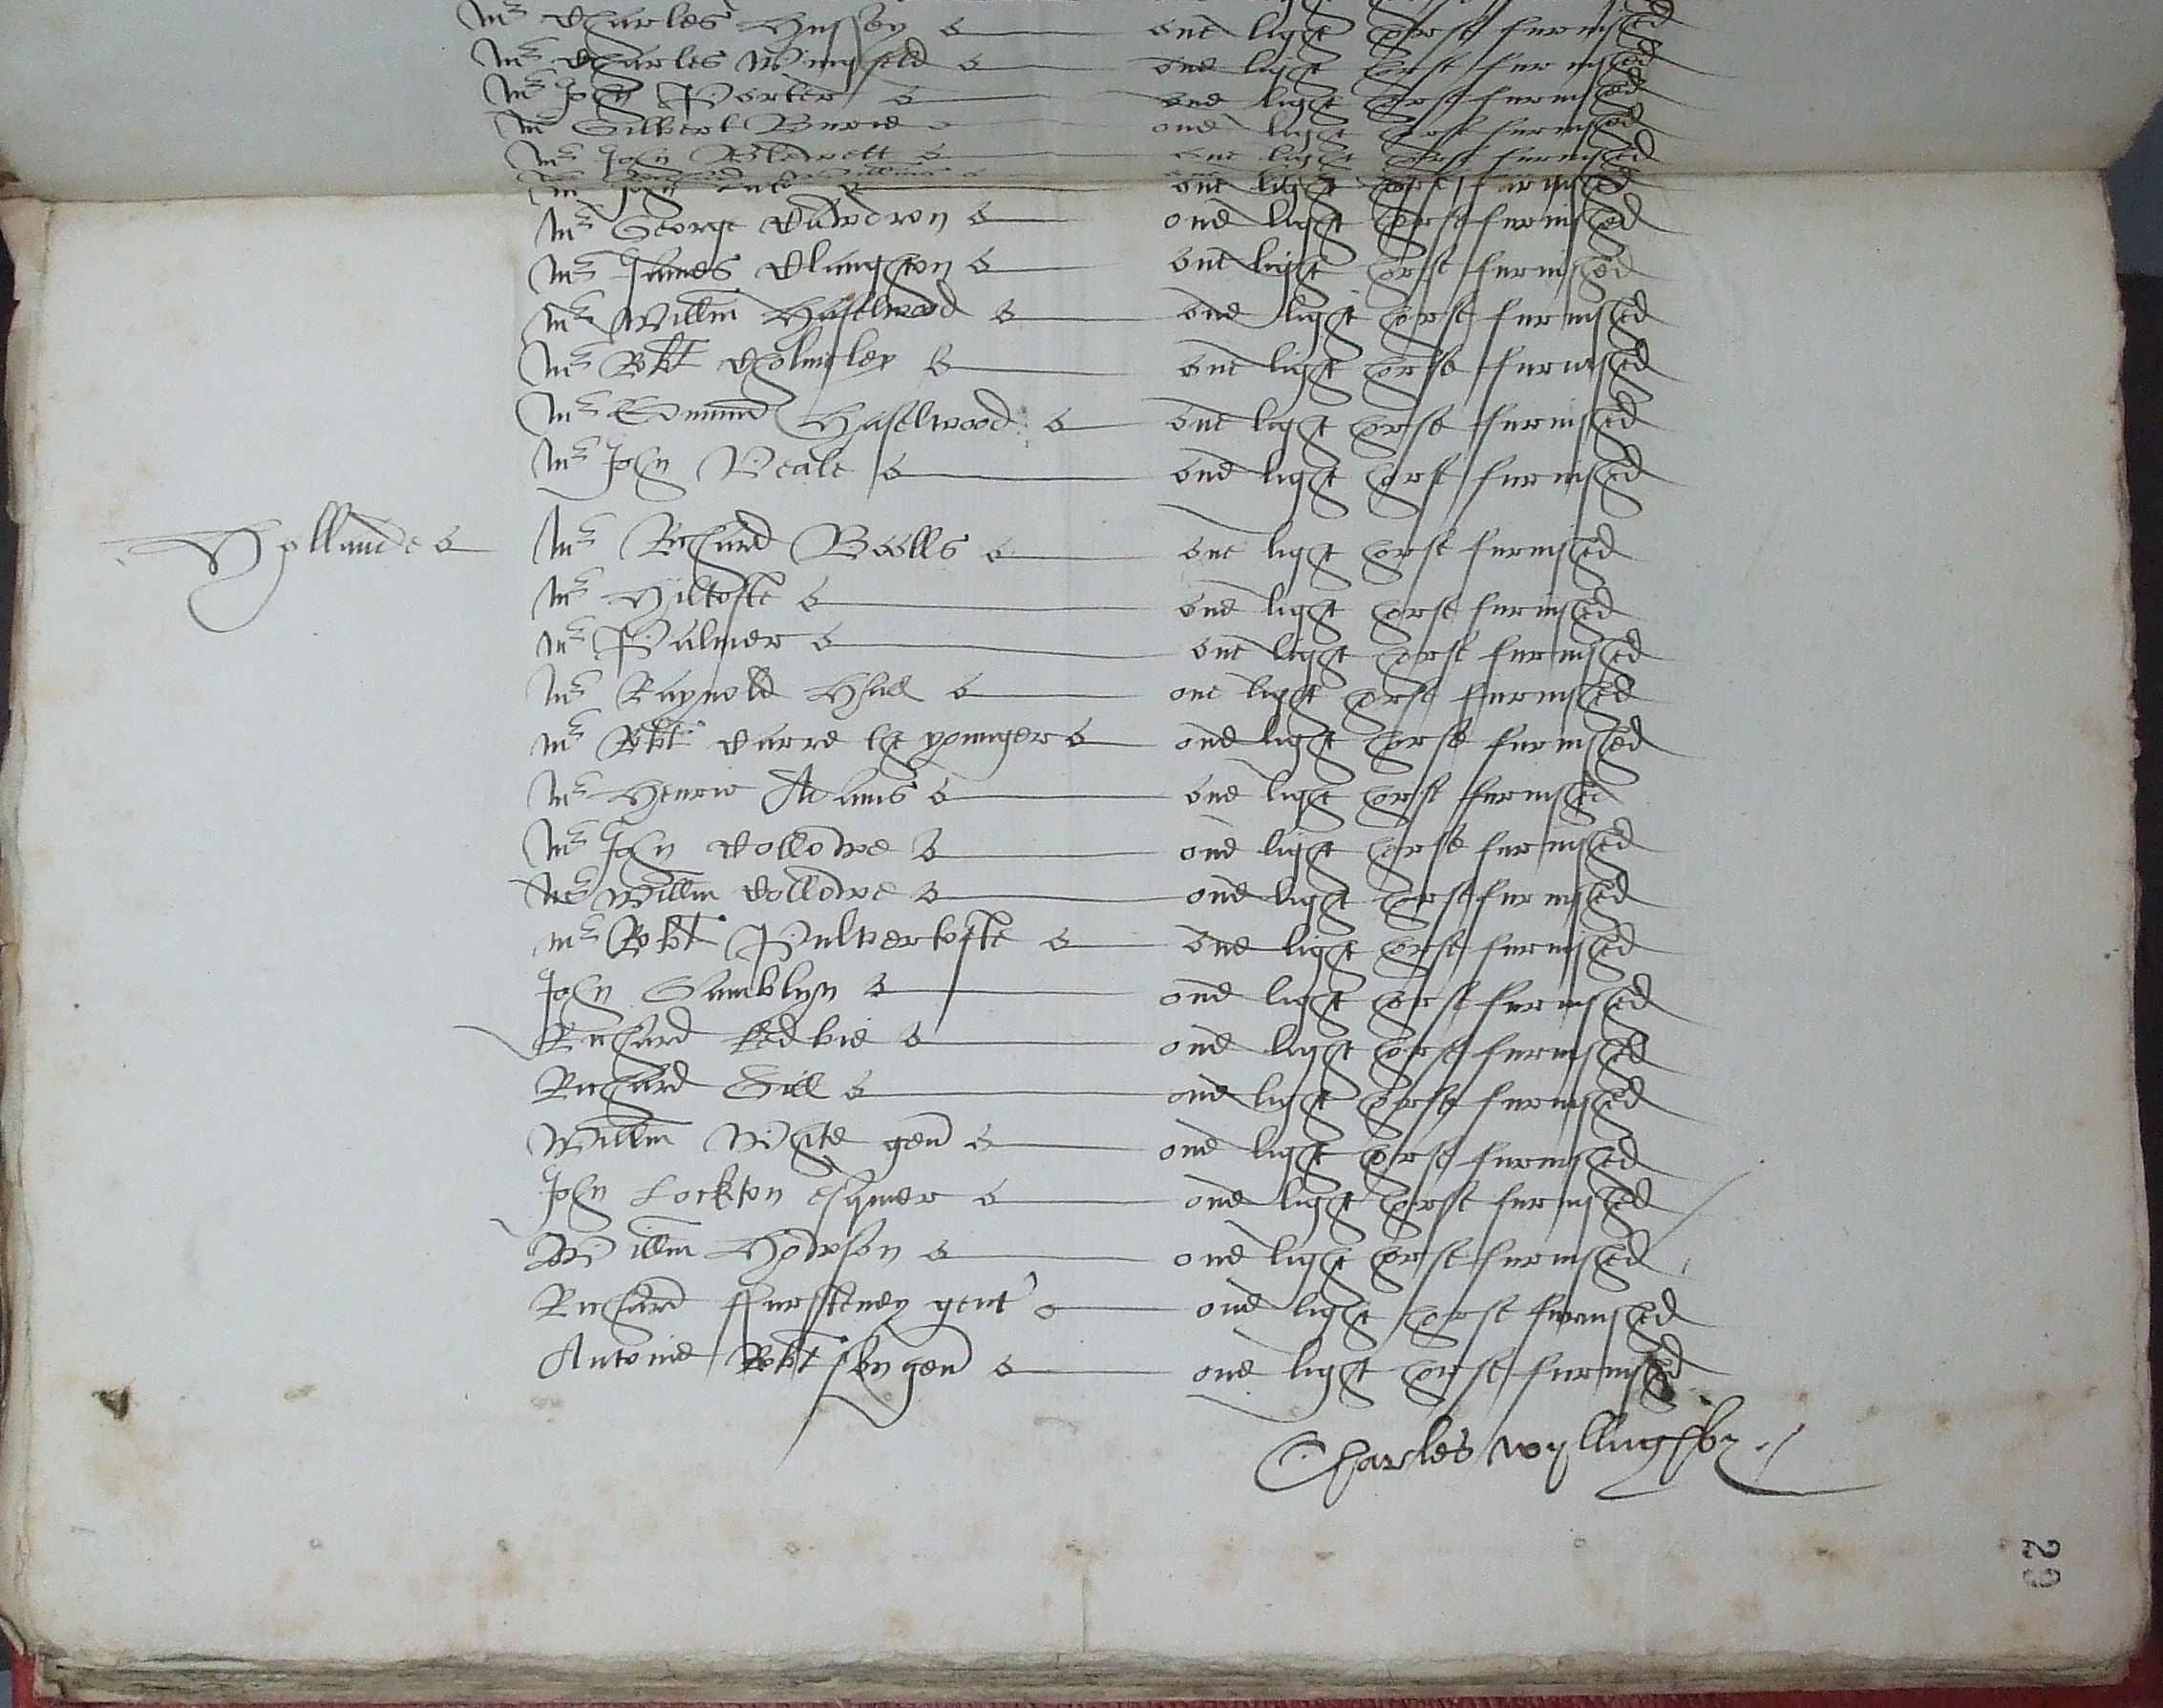 Mr Charles Hussey one light horse furnished
Mr Charles Wingfeld one light horse furnished
Mr John Porter one light horse furnished
Mr Gilbert Burie one light horse furnished
Mr John Blewett one light horse furnished
Mr John one light horse furnished
Mr George Cawdron one light horse furnished
Mr James Clayton one light horse furnished
Mr Willm Haselwood one light horse furnished
Mr Robt Colmsley one light horse furnished
Mr Edmund Haselwood one light horse furnished
Mr John Veale one light horse furnished
Hollande Mr Richard Boolls one light horse furnished
Mr Hiltofte one light horse furnished
Mr Palmer one light horse furnished
Mr Raynold Hall one light horse furnished
Mr Robt Carre the younger one light horse furnished
Mr Henrie Adams one light horse furnished
Mr John Collowe one light horse furnished
Mr Willm Collowe one light horse furnished
Mr Robt Pulvertofte one light horse furnished
John Gamblyn one light horse furnished
Richard one light horse furnished
Richard Gill one light horse furnished
Willm White gen one light horse furnished
John Lockton esquier one light horse furnished
Willm Howson one light horse furnished
Richard gent one light horse furnished
Antonie Robtson gen one light horse furnished
Charles Wyllughby
29